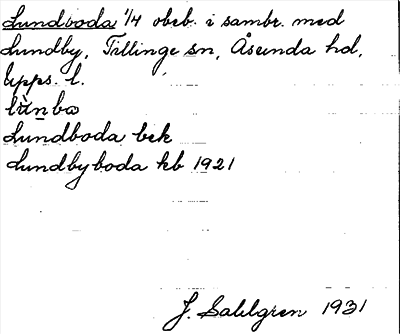 Lundboda 1/4 obeb. i sambr. med
Lundby, Tillinge sn, Åsunda hd,
Upps. l.
Lundboda bek
Lundbyboda kb 1921
J. Sahlgren 1931